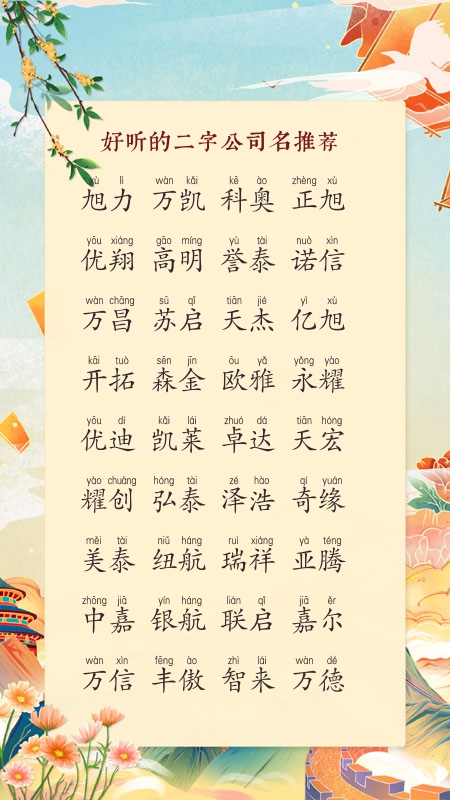 好听的二字公司名推荐
xù lì wàn kǎi kē ào zhèng xù
旭力 万凯 科奥 正旭
yōu xiáng gāo míng yù tài nuò xìn
优翔 高明 誉泰 诺信
wàn chāng sū qǐ tiān jié yì xù
万昌 苏启 天杰 亿旭
kāi tuò sēn jīn ōu yǎ yǒng yào
开拓 森金 欧雅 永耀
yōu dí kǎi lái zhuó dá tiān hóng
优迪 凯莱 卓达 天宏
yào chuàng hóng tài zé hào qí yuán
耀创 弘泰 泽浩 奇缘
měi tài niǔ háng ruì xiáng yà téng
美泰 纽航 瑞祥 亚腾
zhōng jiā yín háng lián qǐ jiā ěr
中嘉 银航 联启 嘉尔
wàn xìn fēng ào zhì lái wàn dé
万信 丰傲 智来 万德